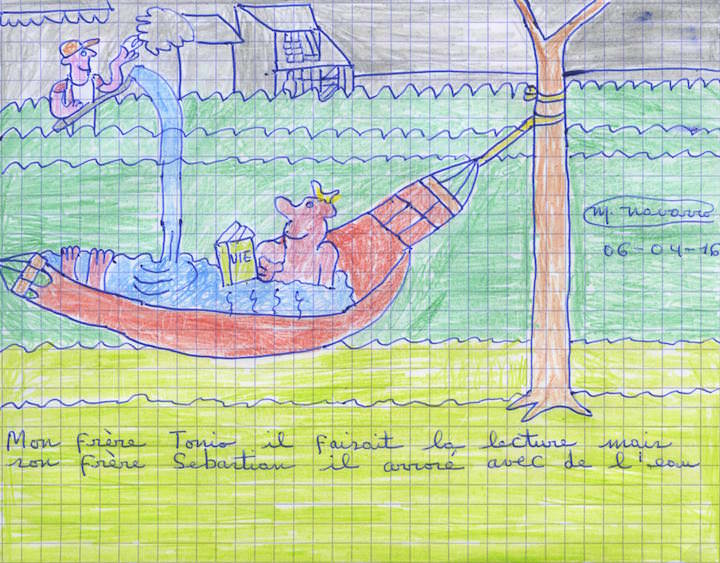 VIE
M. Navarro
06-04-16
Mon frère Tonio il faisait la lecture mais
son frère Sebastian il arrosé avec de l'eau